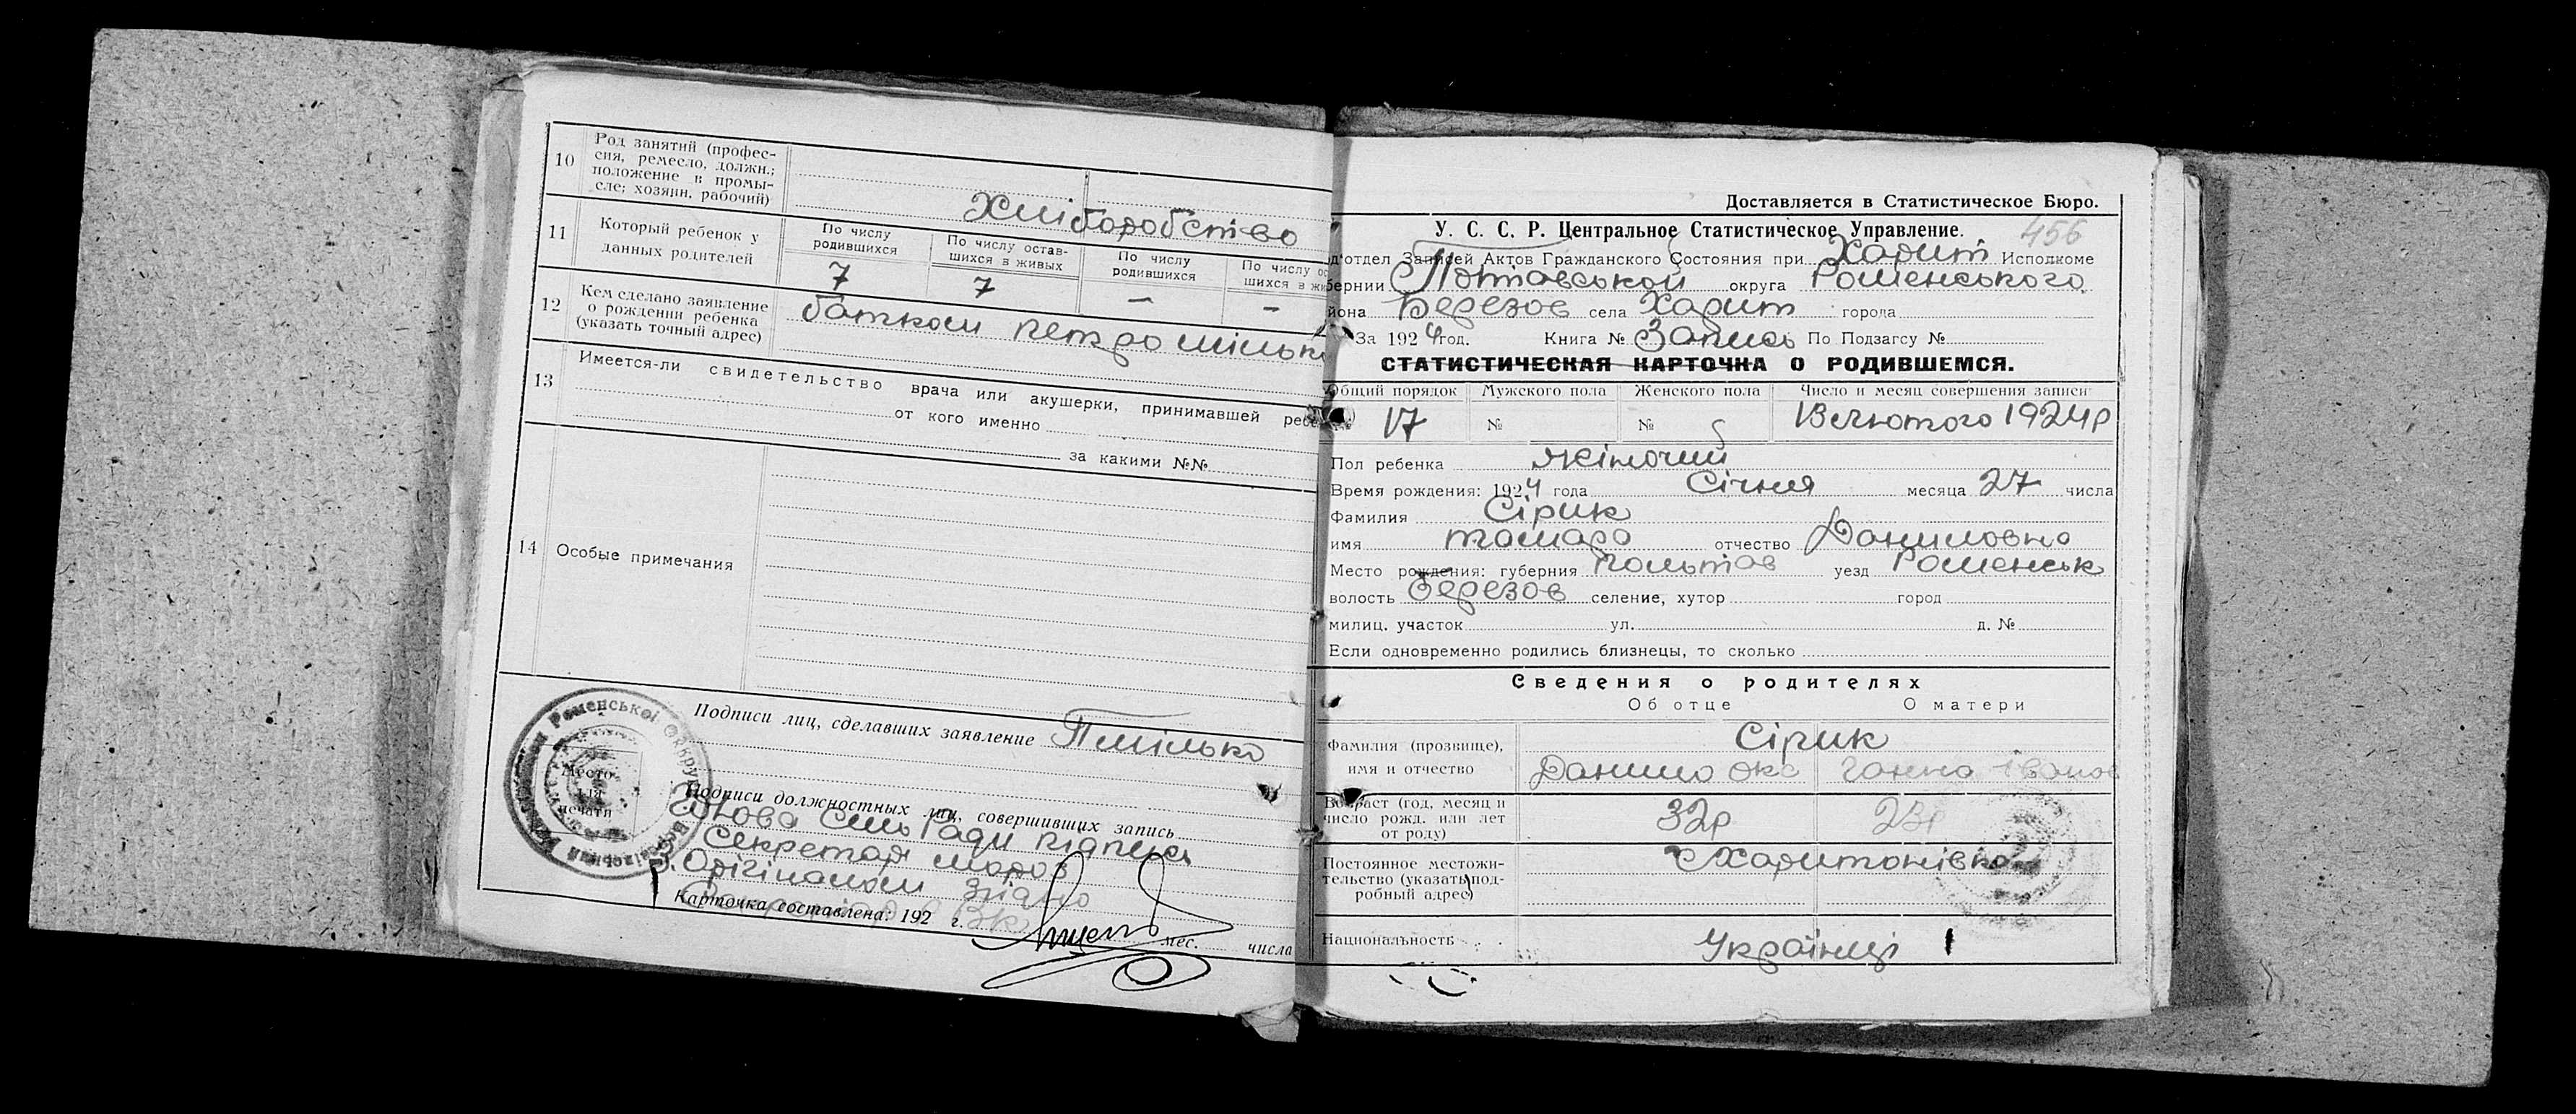 10 Род занятий (профес-
сия, ремесло, должн.;
положение в промы-
сле; хозяин, рабочий)
Хліборобство
11 Который ребенок у
данных родителей
По числу
родившихся
По числу остав-
шихся в живых
По числу
родившихся
По числу ос
шихся в жи
7 7 — —
12 Кем сделано заявление
о рождении ребенка
(указать точный адрес)
батком петро мілько
13 Имеется-ли свидетельство врача или акушерки, принимавшей ребе
от кого именно
за какими №№
14 Особые примечания
Подписи лиц, сделавших заявление П мілько
Роменської Округи
Место
для
печати
Подписи должностных лиц, совершивших запись
Голова Сіль Ради підпись
Секретар
З Орігіналом згідно
Карточка составлена: 192 г. мес. числа
Доставляется в Статистическое Бюро.
У. С. С. Р. Центральное Статистическое Управление.
456
д'отдел Записей Актов Гражданского Состояния при Харит Исполкоме
бернии Полтавськой округа Роменського
йона Березов села Харит города
За 1924 год. Книга № Запись По Подзагсу №
СТАТИСТИЧЕСКАЯ КАРТОЧКА О РОДИВШЕМСЯ.
Общий порядок Мужского пола Женского пола Число и месяц совершения записи
17 № № 13 лютого 1924р
Пол ребенка жіночий
Время рождения: 1924 года Січня месяца 27 числа
Фамилия Сірик
имя тамара отчество Даниловна
Место рождения: губерния Польтав уезд Роменськ
волость березов селение, хутор город
милиц. участок ул. д. №
Если одновременно родились близнецы, то сколько
Сведения о родителях
Об отце О матери
Фамилия (прозвище),
имя и отчество
Сірик
Данило Окс Ганна Іванов
Возраст (год, месяц и
число рожд. или лет
от роду)
32р 23р
Постоянное местожи-
тельство (указать под-
робный адрес)
с Харитонівка
Национальность
Українці